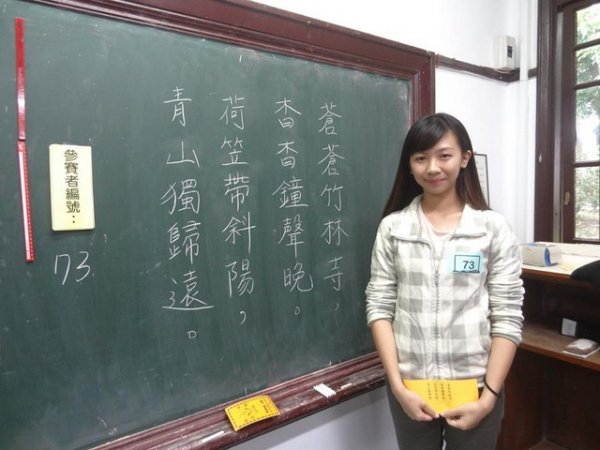 蒼蒼竹林寺，
杳杳鐘聲晚。
荷笠帶斜陽，
青山獨歸遠。
參賽者編號：
73.
73